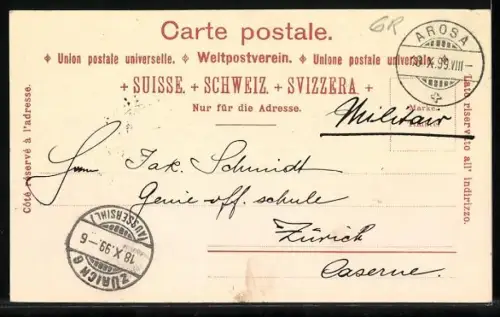 Carte postale.
GR
Union postale universelle. Weltpostverein. Unione postale universale.
SUISSE. SCHWEIZ. SVIZZERA.
Nur für die Adresse.
AROSA
X.99.VIII
Côté réservé à l'adresse.
Lato riservato all' indirizzo.
Marke.
Militair
Herrn Jak. Schmidt
Genie-off. schule
Zürich
Caserne.
ZÜRICH 9
18.X.99.-6
(AUSSERSIHL)